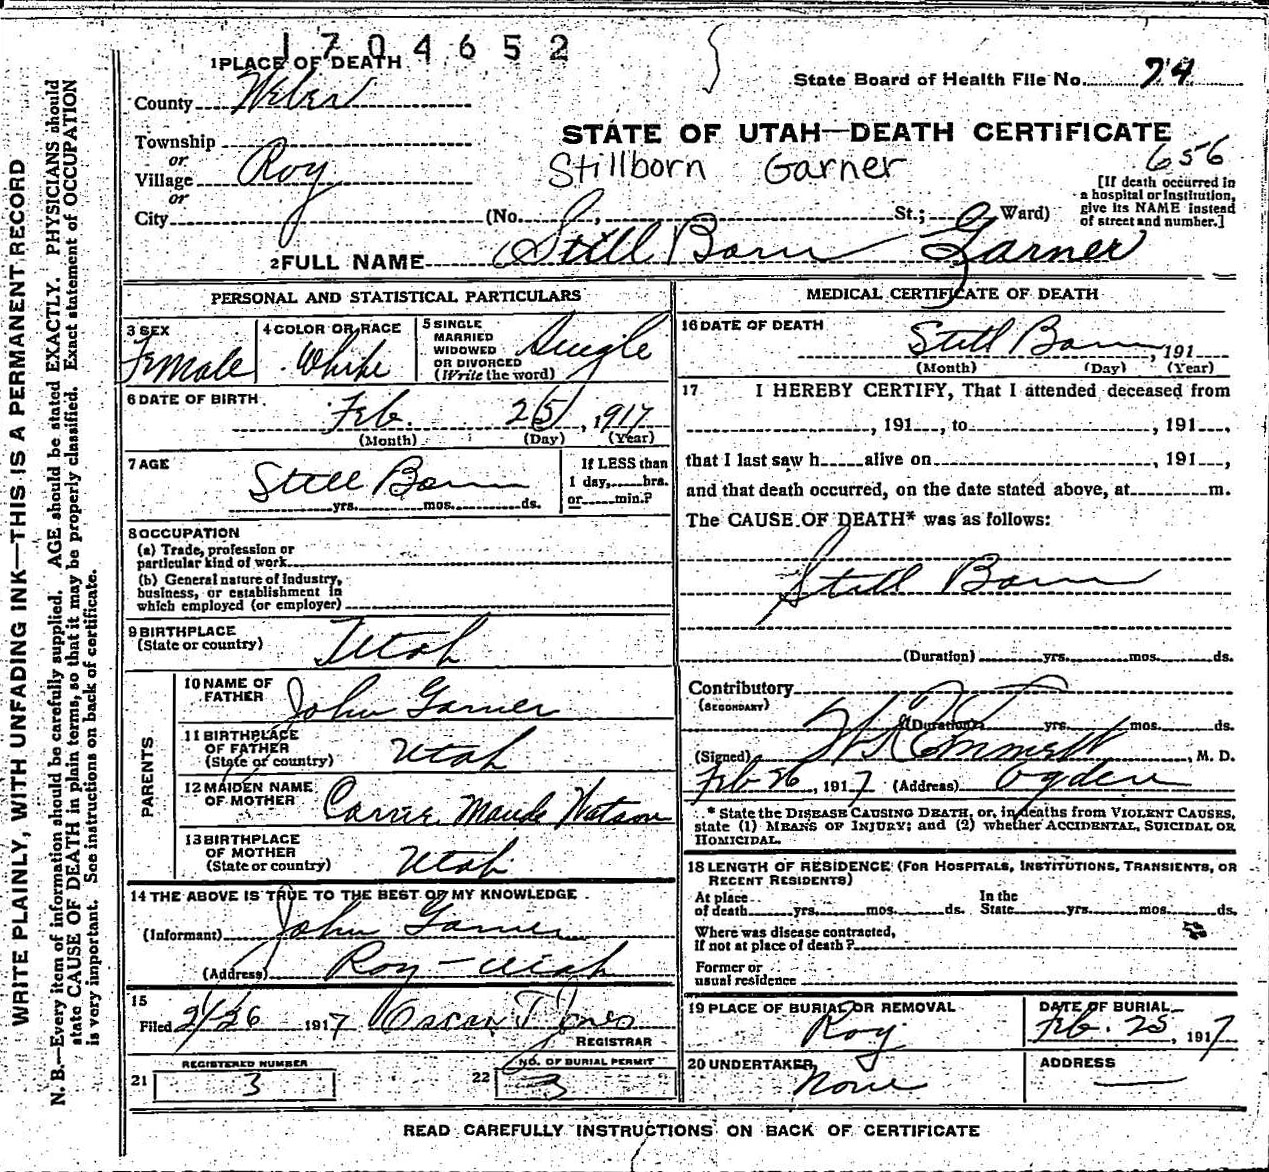 1704652
1 PLACE OF DEATH
State Board of Health File No. 74
County Weber
STATE OF UTAH—DEATH CERTIFICATE
Township
or
Village Roy
or
City
Stillborn Garner
656
[If death occurred in
a hospital or institution,
give its NAME instead
of street and number.]
(No. , St.; Ward)
2 FULL NAME Still Born Garner
PERSONAL AND STATISTICAL PARTICULARS
3 SEX
Female
4 COLOR OR RACE
White
5 SINGLE
MARRIED
WIDOWED
OR DIVORCED
(Write the word)
Single
6 DATE OF BIRTH
Feb. 25, 1917
(Month) (Day) (Year)
7 AGE
Still Born
yrs. mos. ds.
If LESS than
1 day, hrs.
or min.?
8 OCCUPATION
(a) Trade, profession or
particular kind of work
(b) General nature of industry,
business, or establishment in
which employed (or employer)
9 BIRTHPLACE
(State or country)
Utah
PARENTS
10 NAME OF
FATHER
John Garner
11 BIRTHPLACE
OF FATHER
(State or country)
Utah
12 MAIDEN NAME
OF MOTHER
Carrie Maude Watson
13 BIRTHPLACE
OF MOTHER
(State or country)
Utah
14 THE ABOVE IS TRUE TO THE BEST OF MY KNOWLEDGE
(Informant) John Garner
(Address) Roy - Utah
15
Filed 2/26 1917 Oscar T Jones
REGISTRAR
REGISTERED NUMBER
21 3
NO. OF BURIAL PERMIT
22 3
MEDICAL CERTIFICATE OF DEATH
16 DATE OF DEATH
Still Born, 191
(Month) (Day) (Year)
17 I HEREBY CERTIFY, That I attended deceased from
, 191 , to , 191 ,
that I last saw h alive on , 191 ,
and that death occurred, on the date stated above, at m.
The CAUSE OF DEATH* was as follows:
Still Born
(Duration) yrs. mos. ds.
Contributory
(SECONDARY)
(Duration) yrs. mos. ds.
(Signed) Emmett, M. D.
Feb 26, 1917 (Address) Ogden
* State the DISEASE CAUSING DEATH, or, in deaths from VIOLENT CAUSES,
state (1) MEANS OF INJURY; and (2) whether ACCIDENTAL, SUICIDAL OR
HOMICIDAL.
18 LENGTH OF RESIDENCE (FOR HOSPITALS, INSTITUTIONS, TRANSIENTS, OR
RECENT RESIDENTS)
At place
of death yrs. mos. ds.
In the
State yrs. mos. ds.
Where was disease contracted,
if not at place of death?
Former or
usual residence
19 PLACE OF BURIAL OR REMOVAL
Roy
DATE OF BURIAL
Feb. 25, 1917
20 UNDERTAKER
None
ADDRESS
READ CAREFULLY INSTRUCTIONS ON BACK OF CERTIFICATE
WRITE PLAINLY, WITH UNFADING INK—THIS IS A PERMANENT RECORD
N. B.—Every item of information should be carefully supplied. AGE should be stated EXACTLY. PHYSICIANS should
state CAUSE OF DEATH in plain terms, so that it may be properly classified. Exact statement of OCCUPATION
is very important. See instructions on back of certificate.